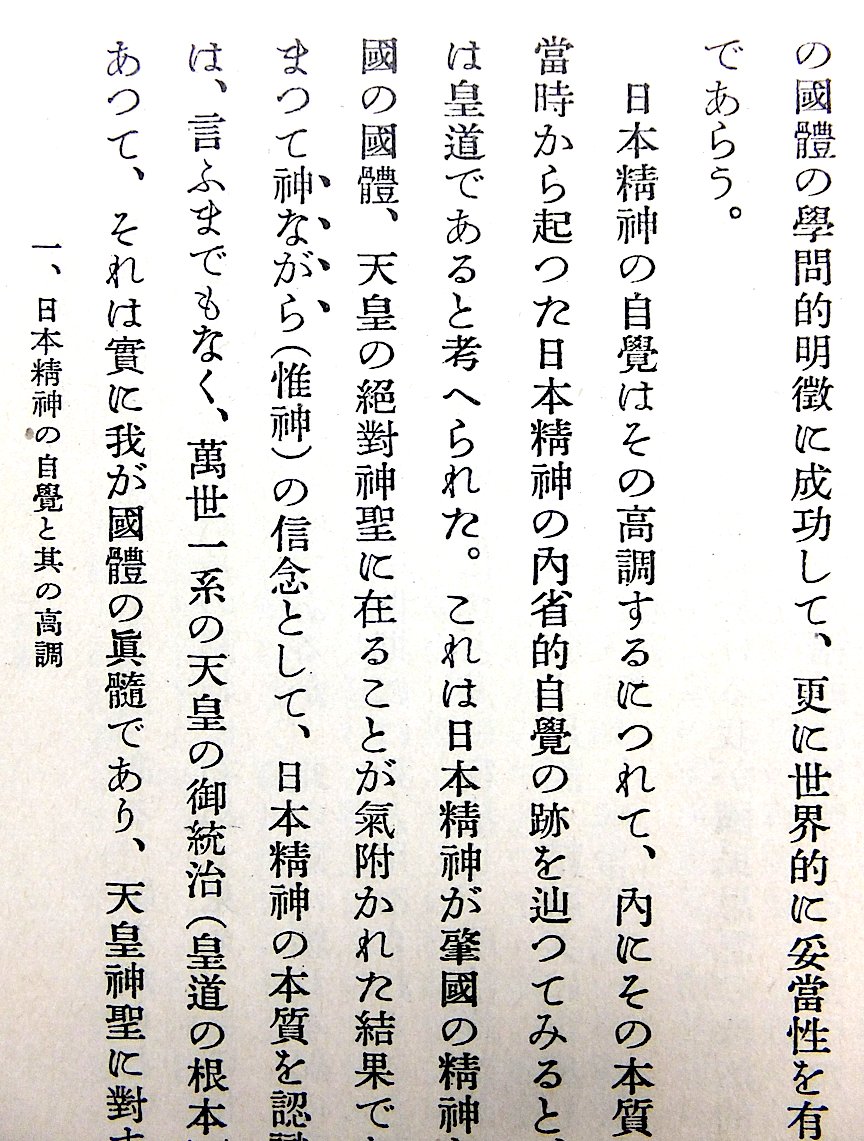 の國體の學問的明徵に成功して、更に世界的に妥當性を有
であらう。
日本精神の自覺はその高調するにつれて、內にその本質
當時から起つた日本精神の內省的自覺の跡を辿つてみると、
は皇道であると考へられた。これは日本精神が肇國の精神
國の國體、天皇の絕對神聖に在ることが氣附かれた結果で
まつて神ながら(惟神)の信念として、日本精神の本質を認
は、言ふまでもなく、萬世一系の天皇の御統治(皇道の根本
あつて、それは實に我が國體の眞髓であり、天皇神聖に對
一、日本精神の自覺と其の高調